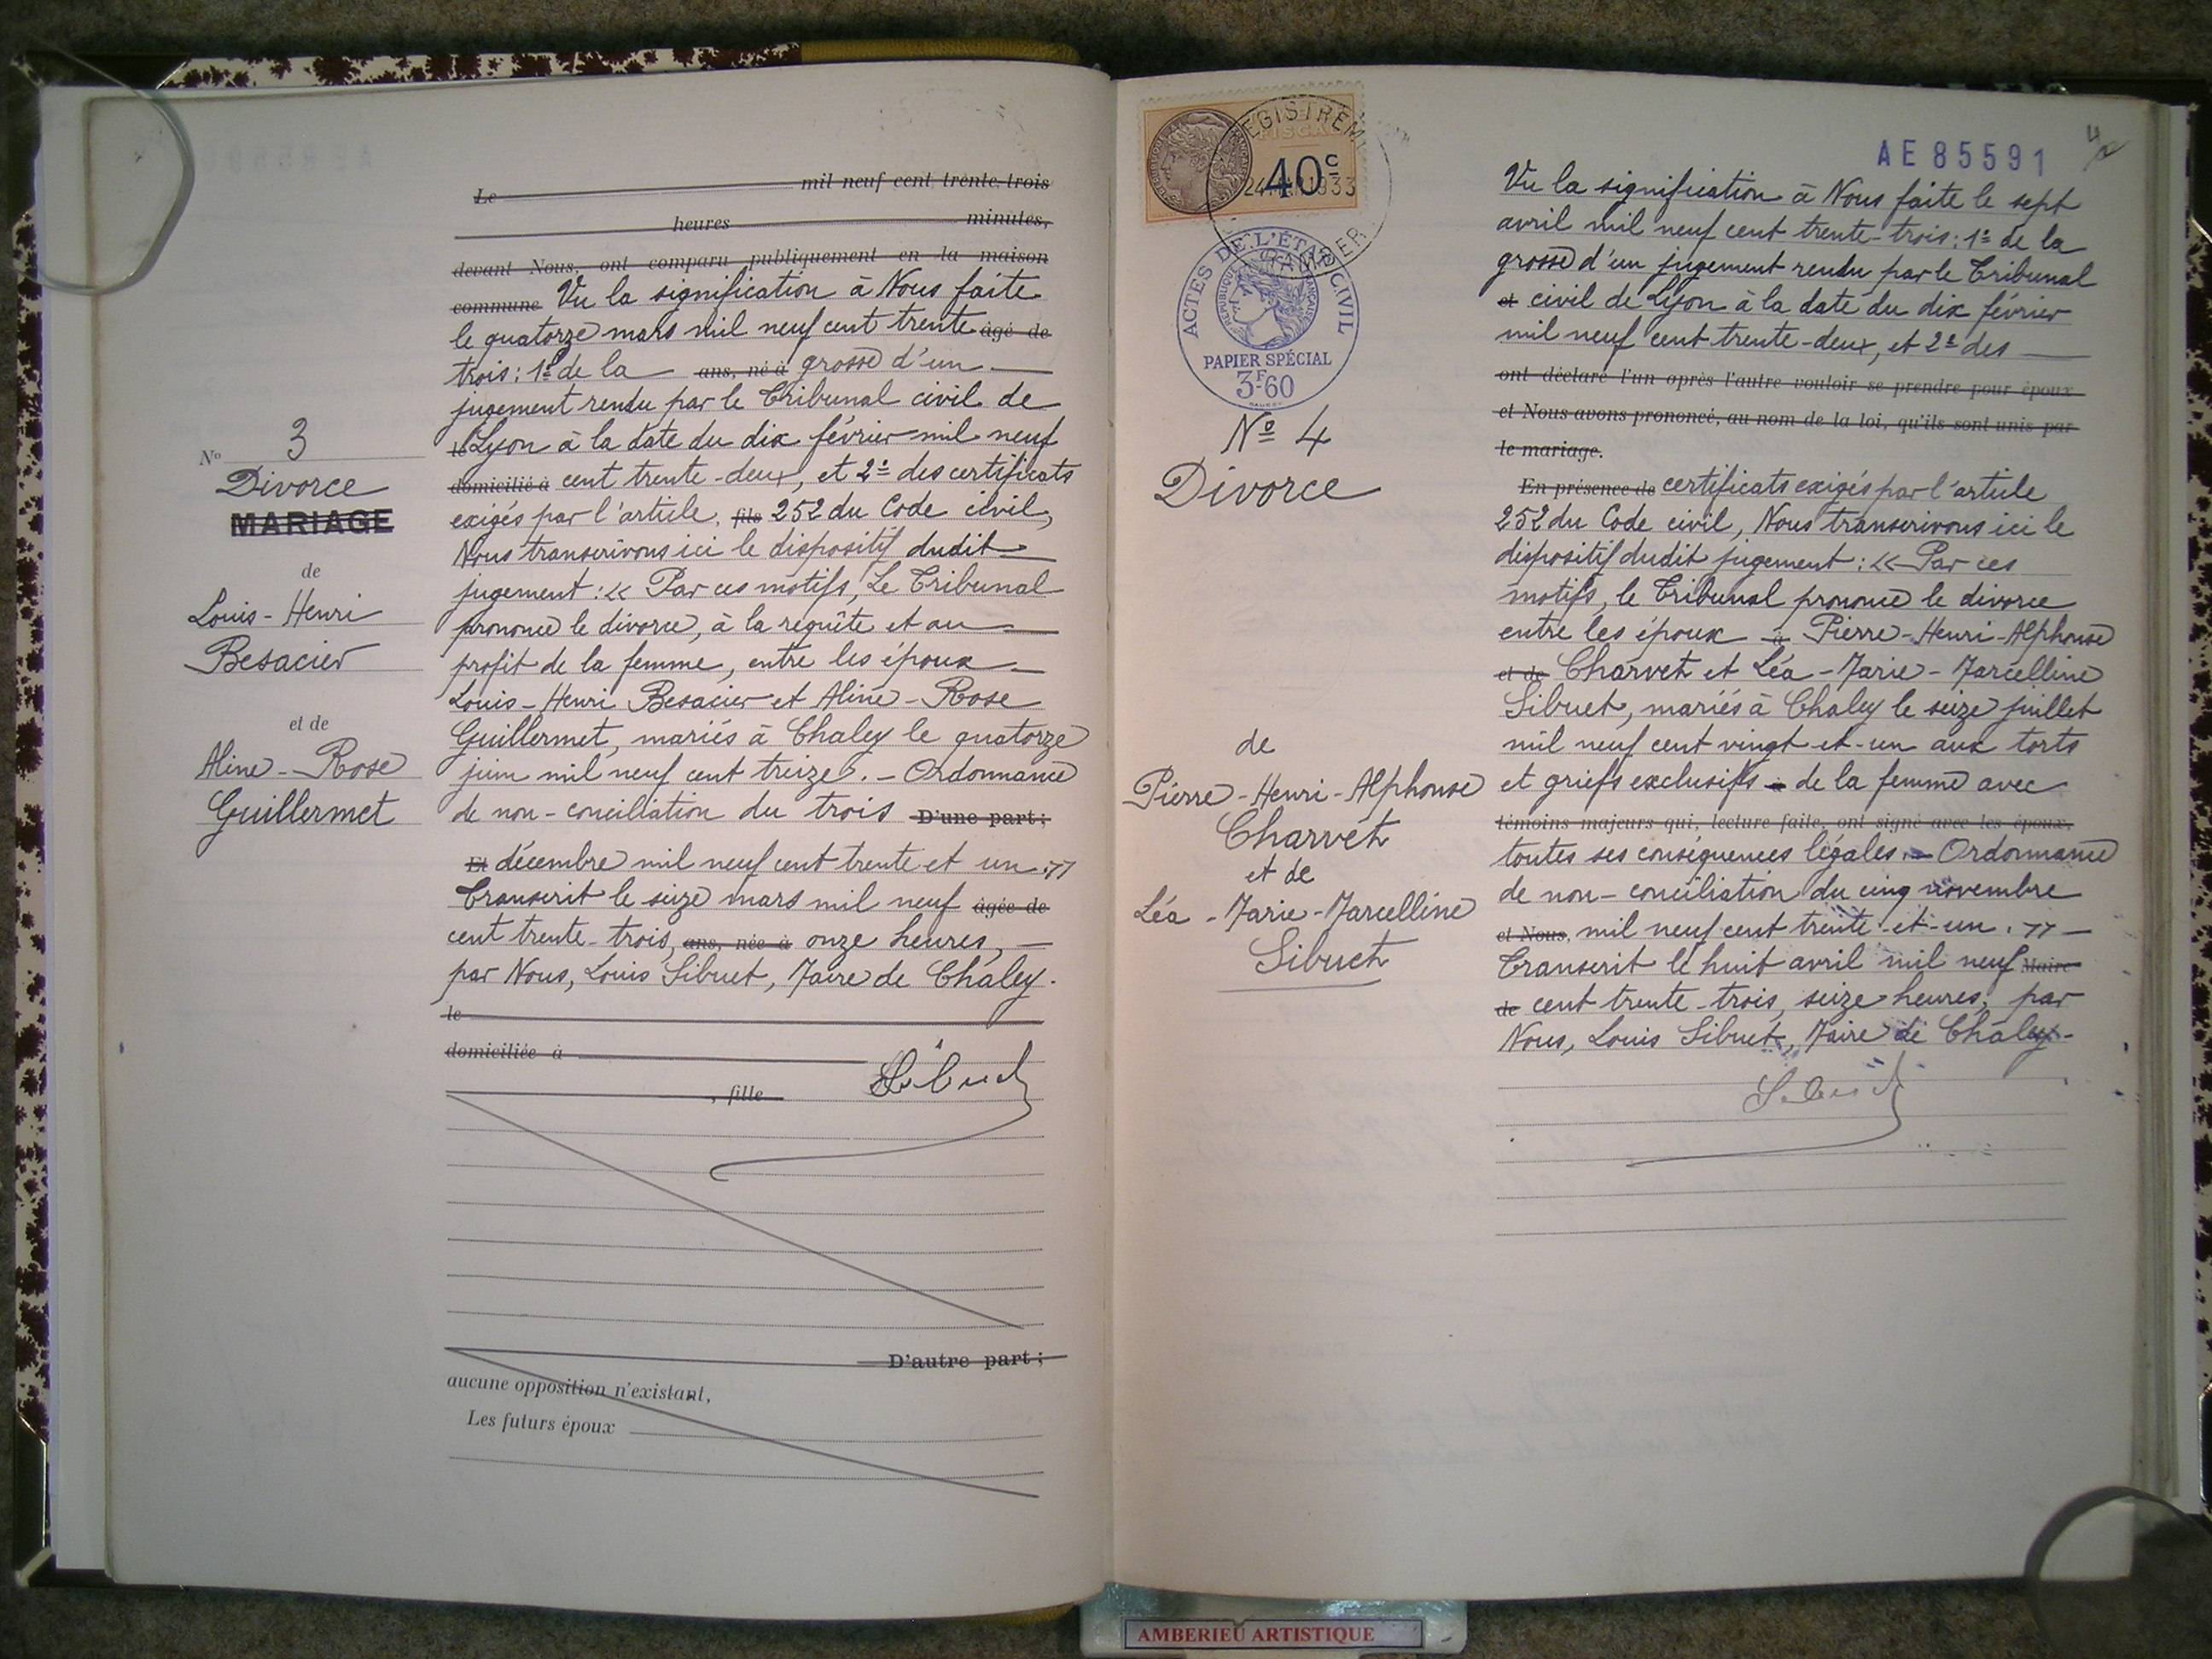 Le mil neuf cent trente-trois
heures minutes,
devant Nous, ont comparu publiquement en la maison
commune Vu la signification à Nous faite
le quatorze mars mil neuf cent trente âgé de
trois : 1º de la ans, né à grosse d'un
jugement rendu par le Tribunal civil de
Lyon à la date du dix février mil neuf
domicilié à cent trente-deux, et 2º des certificats
exigés par l'article, fils 252 du Code civil,
Nous transcrivons ici le dispositif dudit
jugement : « Par ces motifs, Le Tribunal
prononce le divorce, à la requête et au
profit de la femme, entre les époux
Louis-Henri Besacier et Aline-Rose
Guillermet, mariés à Chaley le quatorze
juin mil neuf cent treize. - Ordonnance
de non-conciliation du trois D'une part ;
Et décembre mil neuf cent trente et un . »
Transcrit le seize mars mil neuf âgée de
cent trente-trois, ans, née à onze heures,
par Nous, Louis Sibuet, Maire de Chaley.
le
domiciliée à
, fille
Sibuet
D'autre part ;
aucune opposition n'existant,
Les futurs époux
Nº 3
Divorce
MARIAGE
de
Louis-Henri
Besacier
et de
Aline-Rose
Guillermet
40c
1933
ACTES DE L'ÉTAT CIVIL
RÉPUBLIQUE FRANÇAISE
PAPIER SPÉCIAL
3F60
Nº 4
Divorce
de
Pierre-Henri-Alphonse
Charvet
et de
Léa-Marie-Marcelline
Sibuet
AE 85591
Vu la signification à Nous faite le sept
avril mil neuf cent trente-trois : 1º de la
grosse d'un jugement rendu par le Tribunal
et civil de Lyon à la date du dix février
mil neuf cent trente-deux, et 2º des
ont déclaré l'un après l'autre vouloir se prendre pour époux
et Nous avons prononcé, au nom de la loi, qu'ils sont unis par
le mariage.
En présence de certificats exigés par l'article
252 du Code civil, Nous transcrivons ici le
dispositif dudit jugement : « Par ces
motifs, le Tribunal prononce le divorce
entre les époux à Pierre-Henri-Alphonse
et de Charvet et Léa-Marie-Marcelline
Sibuet, mariés à Chaley le seize juillet
mil neuf cent vingt-et-un aux torts
et griefs exclusifs de la femme avec
témoins majeurs qui, lecture faite, ont signé avec les époux,
toutes ses conséquences légales. - Ordonnance
de non-conciliation du cinq novembre
et Nous, mil neuf cent trente-et-un . »
Transcrit le huit avril mil neuf Maire
de cent trente-trois, seize heures, par
Nous, Louis Sibuet, Maire de Chaley.
Sibuet
AMBERIEU ARTISTIQUE